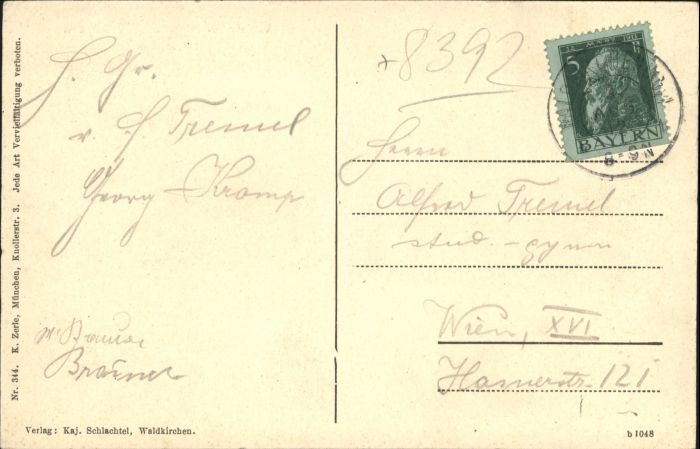 Nr. 344. K. Zerle, München, Knollerstr. 3. Jede Art Vervielfältigung verboten.
H. Gr.
v. H. Tremel
Georg Kramp
Verlag: Kaj. Schlachtel, Waldkirchen.
+8392
12. MÄRZ 1911
5
BAYERN
Herrn
Alfred Tremel
stud. - gymn
Wien, XVI
Hasnerstr. 121
b 1048